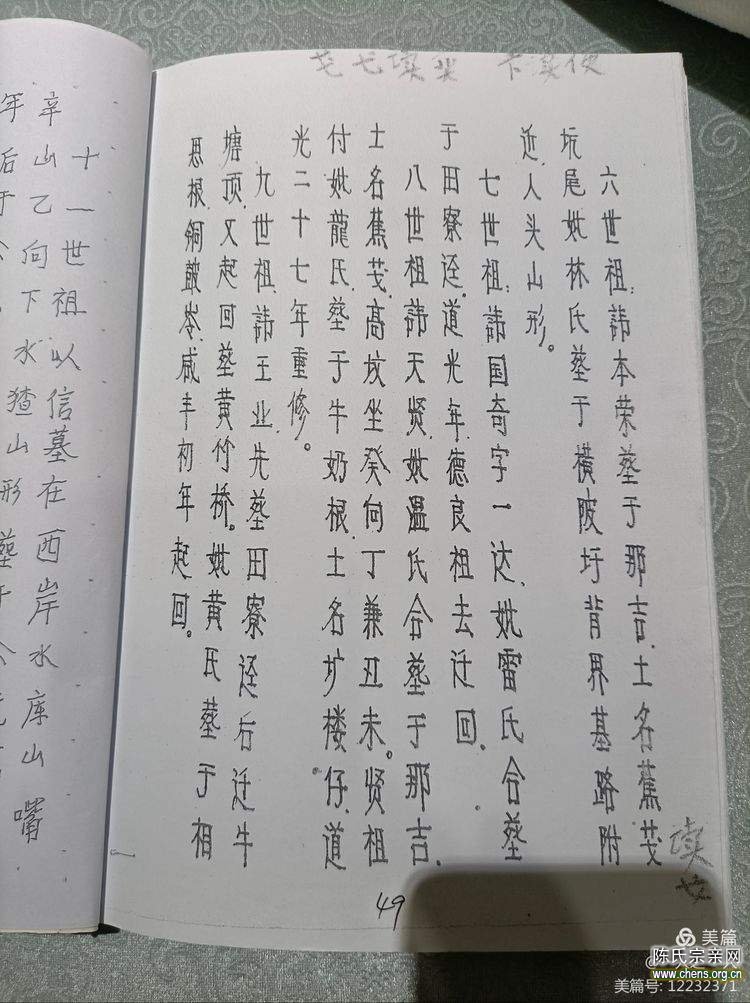 六世祖：諱本荣墓于那吉、土名蕉芟
坑尾妣林氏墓于横陂圩背界基路附
近、人头山形。
七世祖：諱国奇字一达、妣雷氏合墓
于田寮迳、道光年、德良祖去迁回、
八世祖諱天贤、妣温氏合墓于那吉、
土名蕉芟、高坟坐癸向丁兼丑未。贤祖
付妣龍氏、墓于牛奶根、土名圹楼仔、道
光二十七年重修。
九世祖、諱王业先墓田寮迳后迁牛
塘顶、又起回墓黄竹桥。妣黄氏墓于相
思根铜鼓岺、咸丰初年起回。
读
49
十一世祖以信墓在西岸水库山嘴
辛山乙向下水猹山形
美篇
陈氏宗亲网
www.chens.org.cn
美篇号: 12232371